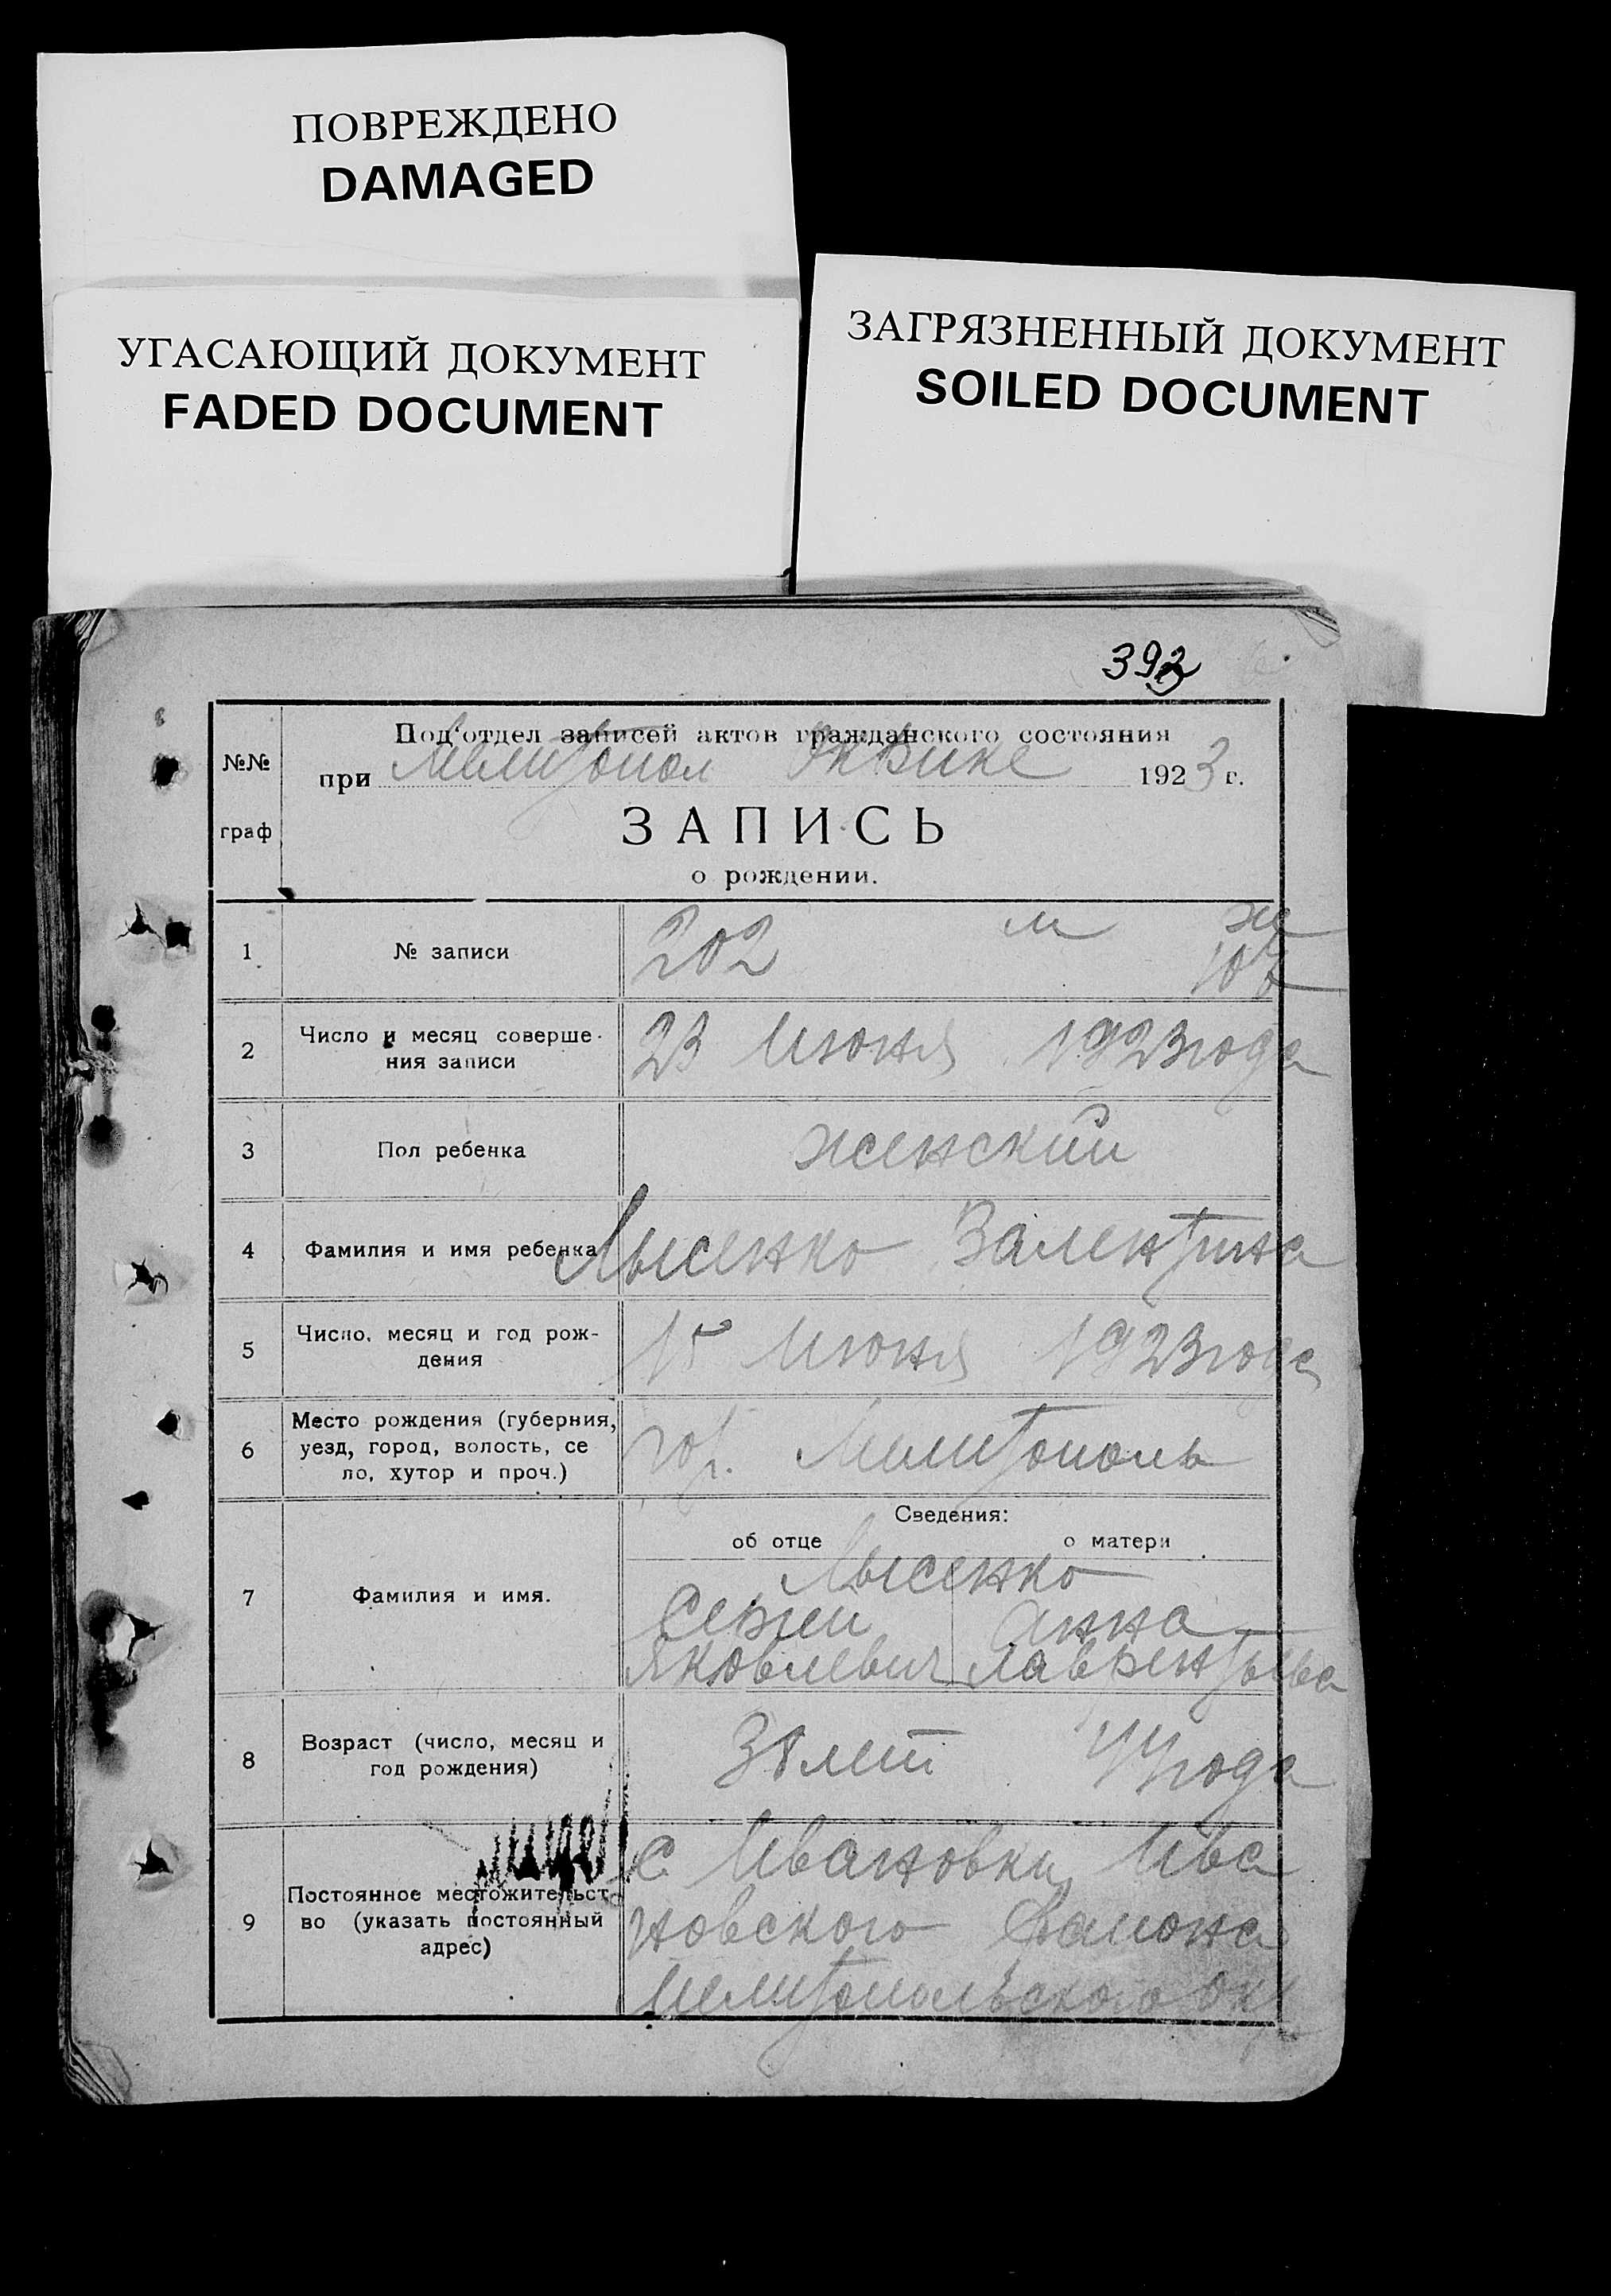 ПОВРЕЖДЕНО
DAMAGED
УГАСАЮЩИЙ ДОКУМЕНТ
FADED DOCUMENT
ЗАГРЯЗНЕННЫЙ ДОКУМЕНТ
SOILED DOCUMENT
№№ граф
Под'отдел записей актов гражданского состояния
при Мелитопол 1923 г.
ЗАПИСЬ
о рождении.
1 № записи 202 м ж
2 Число и месяц соверше-
ния записи 23 Июня 1923 года
3 Пол ребенка женский
4 Фамилия и имя ребенка Лысенко Валентина
5 Число, месяц и год рож-
дения 15 Июня 1923 года
6 Место рождения (губерния,
уезд, город, волость, се
ло, хутор и проч.) гор. Мелитополь
Сведения:
об отце о матери
Лысенко
7 Фамилия и имя. Сергей Анна
Яковлевич Лаврентьева
8 Возраст (число, месяц и
год рождения) лет года
9 Постоянное местожительст-
во (указать постоянный
адрес) с Ивановки Ива
новского Района
Мелитопольского Окр